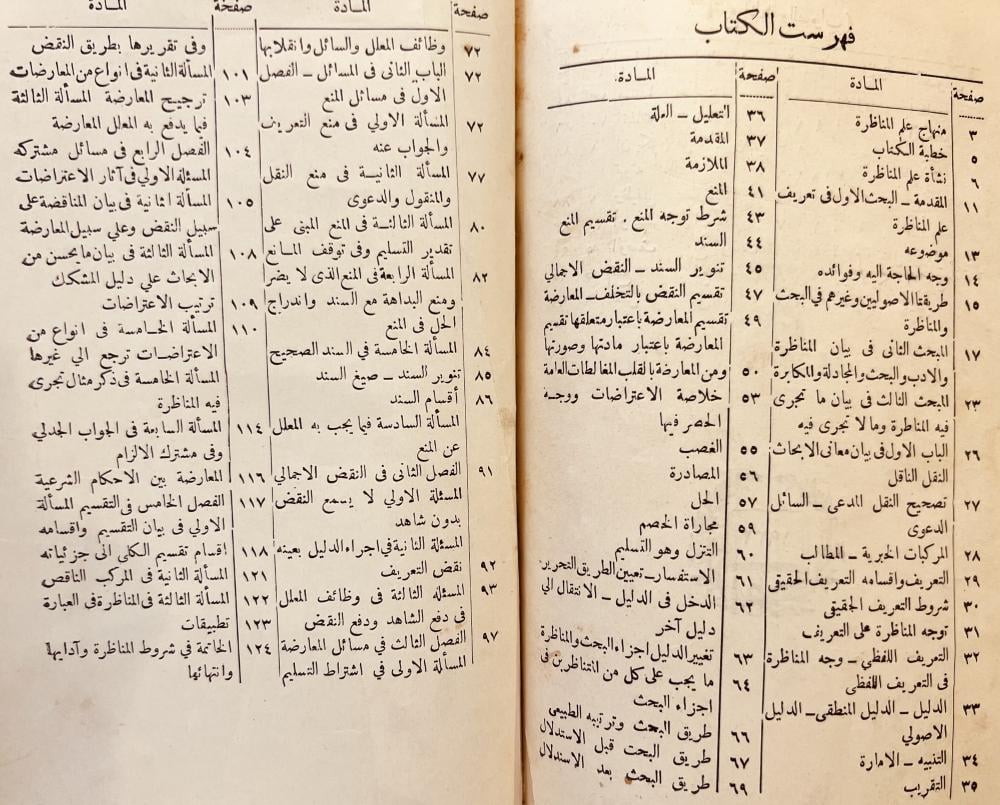 فهرست الكتاب
صفحة المادة
٣ منهاج علم المناظرة
٥ خطبة الكتاب
٦ نشأة علم المناظرة
١١ المقدمة ــ البحث الاول فى تعريف
علم المناظرة
١٣ موضوعه
١٤ وجه الحاجة اليه وفوائده
١٥ طريقتا الاصوليين وغيرهم في البحث
والمناظرة
١٧ المبحث الثانى فى بيان المناظرة
والادب والبحث والمجادلة والمكابرة
٢٣ المبحث الثالث فى بيان ما تجرى
فيه المناظرة وما لا تجرى فيه
٢٦ الباب الاول فى بيان معانى الابحاث
النقل الناقل
٢٧ تصحيح النقل المدعى ــ السائل
الدعوى
٢٨ المركبات الخبرية ــ المطالب
٢٩ التعريف واقسامه التعريف الحقيقى
٣٠ شروط التعريف الحقيقى
٣١ توجه المناظرة على التعريف
٣٢ التعريف اللفظي ــ وجه المناظرة
فى التعريف اللفظى
٣٣ الدليل ــ الدليل المنطقى ــ الدليل
الاصولي
٣٤ التنبيه ــ الامارة
٣٥ التقريب
صفحة المادة
٣٦ التعليل ــ العلة
٣٧ المقدمة
٣٨ الملازمة
٤١ المنع
٤٣ شرط توجه المنع . تقسيم المنع
٤٤ السند
٤٥ تنوير السند ــ النقض الاجمالي
٤٧ تقسيم النقض بالتخلف ــ المعارضة
٤٩ تقسيم المعارضة باعتبار متعلقها تقسيم
المعارضة باعتبار مادتها وصورتها
٥٠ ومن المعارضة بالقلب المغالطات العامة
٥٣ خلاصة الاعتراضات ووجه
الحصر فيها
٥٥ الغصب
٥٦ المصادرة
٥٧ الحل
٥٩ مجاراة الخصم
٦٠ التنزل وهو التسليم
٦١ الاستفسار ــ تعيين الطريق التحرير
٦٢ الدخل فى الدليل ــ الانتقال الي
دليل آخر
٦٣ تغيير الدليل اجزاء البحث والمناظرة
٦٤ ما يجب على كل من المتناظرين فى
اجزاء البحث
٦٦ طريق البحث وترتيبه الطبيعي
٦٧ طريق البحث قبل الاستدلال
٦٩ طريق البحث بعد الاستدلال
صفحة المادة
٧٢ وظائف المعلل والسائل وانقلابها
٧٢ الباب الثانى فى المسائل ــ الفصل
الاول فى مسائل المنع
٧٢ المسألة الاولي فى منع التعريف
والجواب عنه
٧٧ المسألة الثانية فى منع النقل
والمنقول والدعوى
٨٠ المسألة الثالثة فى المنع المبنى على
تقدير التسليم وفى توقف المانع
٨٢ المسألة الرابعة فى المنع الذى لا يضر
ومنع البداهة مع السند واندراج
الحل فى المنع
٨٤ المسألة الخامسة في السند الصحيح
٨٥ تنوير السند ــ صيغ السند
٨٦ أقسام السند
المسألة السادسة فيما يجب به المعلل
عن المنع
٩١ الفصل الثانى فى النقض الاجمالي
المسئلة الاولي لا يسمع النقض
بدون شاهد
المسئلة الثانية فى اجراء الدليل بعينه
٩٢ نقض التعريف
٩٣ المسئلة الثالثة فى وظائف المعلل
فى دفع الشاهد ودفع النقض
٩٧ الفصل الثالث فى مسائل المعارضة
المسألة الاولى فى اشتراط التسليم
صفحة المادة
وفى تقريرها بطريق النقض
١٠١ المسألة الثانية فى انواع من المعارضات
١٠٣ ترجيح المعارضة المسألة الثالثة
فيما يدفع به المعلل المعارضة
١٠٤ الفصل الرابع فى مسائل مشتركه
المسئلة الاولى فى آثار الاعتراضات
١٠٥ المسألة الثانية فى بيان المناقضة على
سبيل النقض وعلي سبيل المعارضة
١٠٨ المسألة الثالثة فى بيان ما يحسن من
الابحاث علي دليل المشكك
١٠٩ ترتيب الاعتراضات
١١٠ المسألة الخامسة فى انواع من
الاعتراضات ترجع الي غيرها
المسألة الخامسة فى ذكر مثال تجرى
فيه المناظرة
١١٤ المسألة السابعة فى الجواب الجدلي
وفى مشترك الالزام
١١٦ المعارضة بين الاحكام الشرعية
١١٧ الفصل الخامس فى التقسيم المسألة
الاولي فى بيان التقسيم واقسامه
١١٨ اقسام تقسيم الكلى الى جزئياته
١٢١ المسألة الثانية فى المركب الناقص
١٢٢ المسألة الثالثة فى المناظرة فى العبارة
١٢٣ تطبيقات
١٢٤ الخاتمة في شروط المناظرة وآدابها
وانتهائها